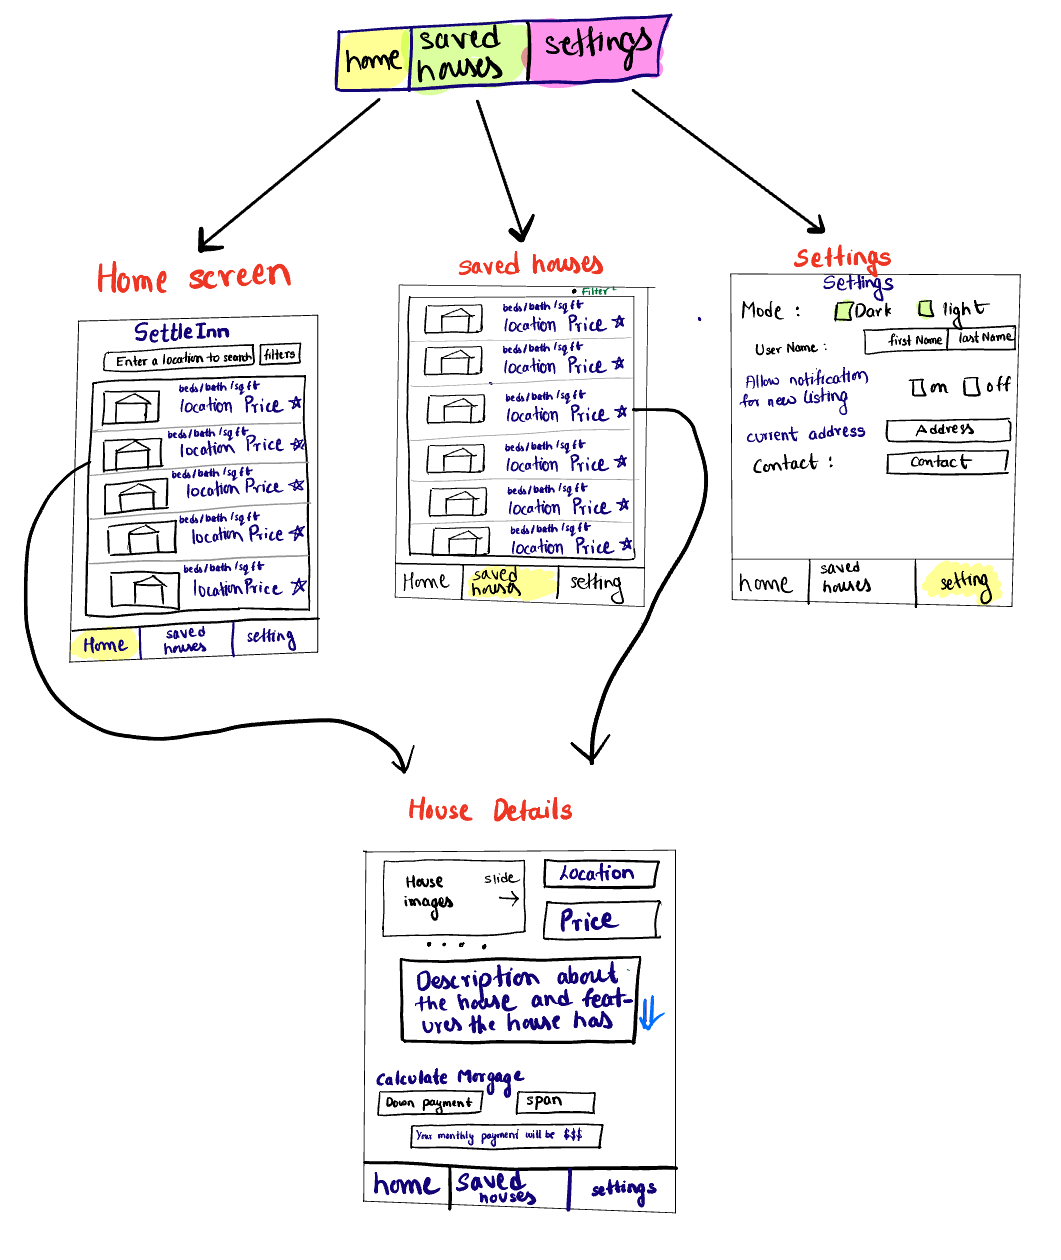 home
saved
houses
settings
Home screen
SettleInn
Enter a location to search
filters
beds/bath/sqft
location Price
beds/bath/sqft
location Price
beds/bath/sqft
location Price
beds/bath/sqft
location Price
beds/bath/sqft
location Price
Home
saved
houses
setting
saved houses
Filter
beds/bath/sqft
location Price
beds/bath/sqft
location Price
beds/bath/sqft
location Price
beds/bath/sqft
location Price
beds/bath/sqft
location Price
beds/bath/sqft
location Price
Home
saved
houses
setting
Settings
Settings
Mode :
Dark
light
User Name :
first Name
last Name
Allow notification
for new listing
on
off
current address
Address
Contact :
Contact
home
saved
houses
setting
House Details
House
images
slide
Location
Price
Description about
the house and feat-
ures the house has
Calculate Morgage
Down payment
span
Your monthly payment will be $$$
home
saved
houses
settings